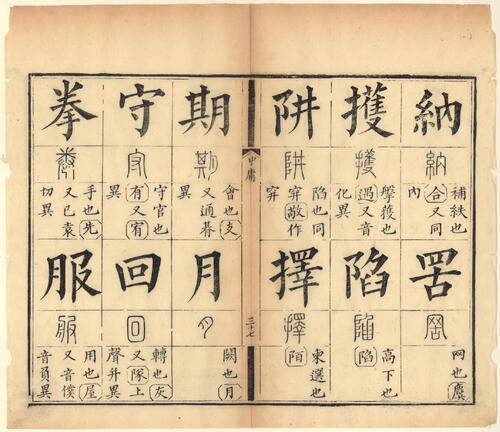 納
納
補紩也
合又同
內
罟
罟
网也麌
擭
擭
擭也
遇又音
化異
陷
陷
高下也
陷
阱
阱
陷也同
穽敬作
穽
擇
擇
柬選也
陌
中庸
三十七
期
期
會也支
又通朞
月
月
闕也月
守
守
守官也
有又宥
異
回
回
轉也灰
又隊上
聲升異
拳
拳
手也先
又已袁
切異
服
服
用也屋
又音僕
音負異